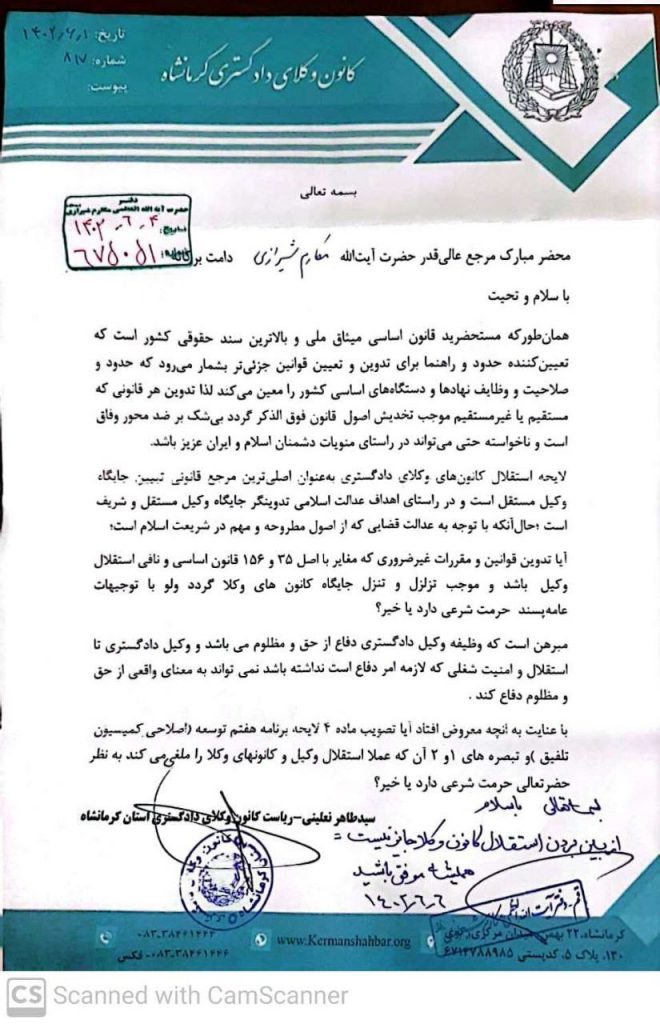 تاریخ: ۱۴۰۲٫۶٫۱
شماره: ۸۱۷
پیوست:
کانون وکلای دادگستری کرمانشاه
بسمه تعالی
دفتر
حضرت آیة الله العظمی مکارم شیرازی
تاریخ: ۱۴۰۲-۶-۴
شماره: ۶۷۵۰۵۱
محضر مبارک مرجع عالی‌قدر حضرت آیت‌الله مکارم شیرازی دامت برکاته
با سلام و تحیت
همان‌طورکه مستحضرید قانون اساسی میثاق ملی و بالاترین سند حقوقی کشور است که
تعیین‌کننده حدود و راهنما برای تدوین و تعیین قوانین جزئی‌تر بشمار می‌رود که حدود و
صلاحیت و وظایف نهادها و دستگاه‌های اساسی کشور را معین می‌کند لذا تدوین هر قانونی که
مستقیم یا غیرمستقیم موجب تخدیش اصول قانون فوق الذکر گردد بی‌شک بر ضد محور وفاق
است و ناخواسته حتی می‌تواند در راستای منویات دشمنان اسلام و ایران عزیز باشد.
لایحه استقلال کانون‌های وکلای دادگستری به‌عنوان اصلی‌ترین مرجع قانونی تبیین جایگاه
وکیل مستقل است و در راستای اهداف عدالت اسلامی تدوینگر جایگاه وکیل مستقل و شریف
است ؛حال‌آنکه با توجه به عدالت قضایی که از اصول مطروحه و مهم در شریعت اسلام است؛
آیا تدوین قوانین و مقررات غیرضروری که مغایر با اصل ۳۵ و ۱۵۶ قانون اساسی و نافی استقلال
وکیل باشد و موجب تزلزل و تنزل جایگاه کانون های وکلا گردد ولو با توجیهات
عامه‌پسند حرمت شرعی دارد یا خیر؟
مبرهن است که وظیفه وکیل دادگستری دفاع از حق و مظلوم می باشد و وکیل دادگستری تا
استقلال و امنیت شغلی که لازمه امر دفاع است نداشته باشد نمی تواند به معنای واقعی از حق
و مظلوم دفاع کند .
با عنایت به آنچه معروض افتاد آیا تصویب ماده ۴ لایحه برنامه هفتم توسعه (اصلاحی کمیسیون
تلفیق )و تبصره های ۱و ۲ آن که عملا استقلال وکیل و کانونهای وکلا را ملغی می کند به نظر
حضرتعالی حرمت شرعی دارد یا خیر؟
سیدطاهر نعلینی-ریاست کانون وکلای دادگستری استان کرمانشاه
بسمه تعالی باسلام
از بین بردن استقلال کانون وکلا جایز نیست =
همیشه موفق باشید
۱۴۰۲٫۶٫۶
۰۸۳-۳۸۴۶۱۴۴۴
۰۸۳-۳۸۴۶۱۴۴۶ - فکس
www.Kermanshahbar.org
کرمانشاه، ۲۲ بهمن، میدان مرکزی،
۱۳۰، پلاک ۵، کدپستی ۶۷۱۴۷۸۸۹۸۵
CS Scanned with CamScanner